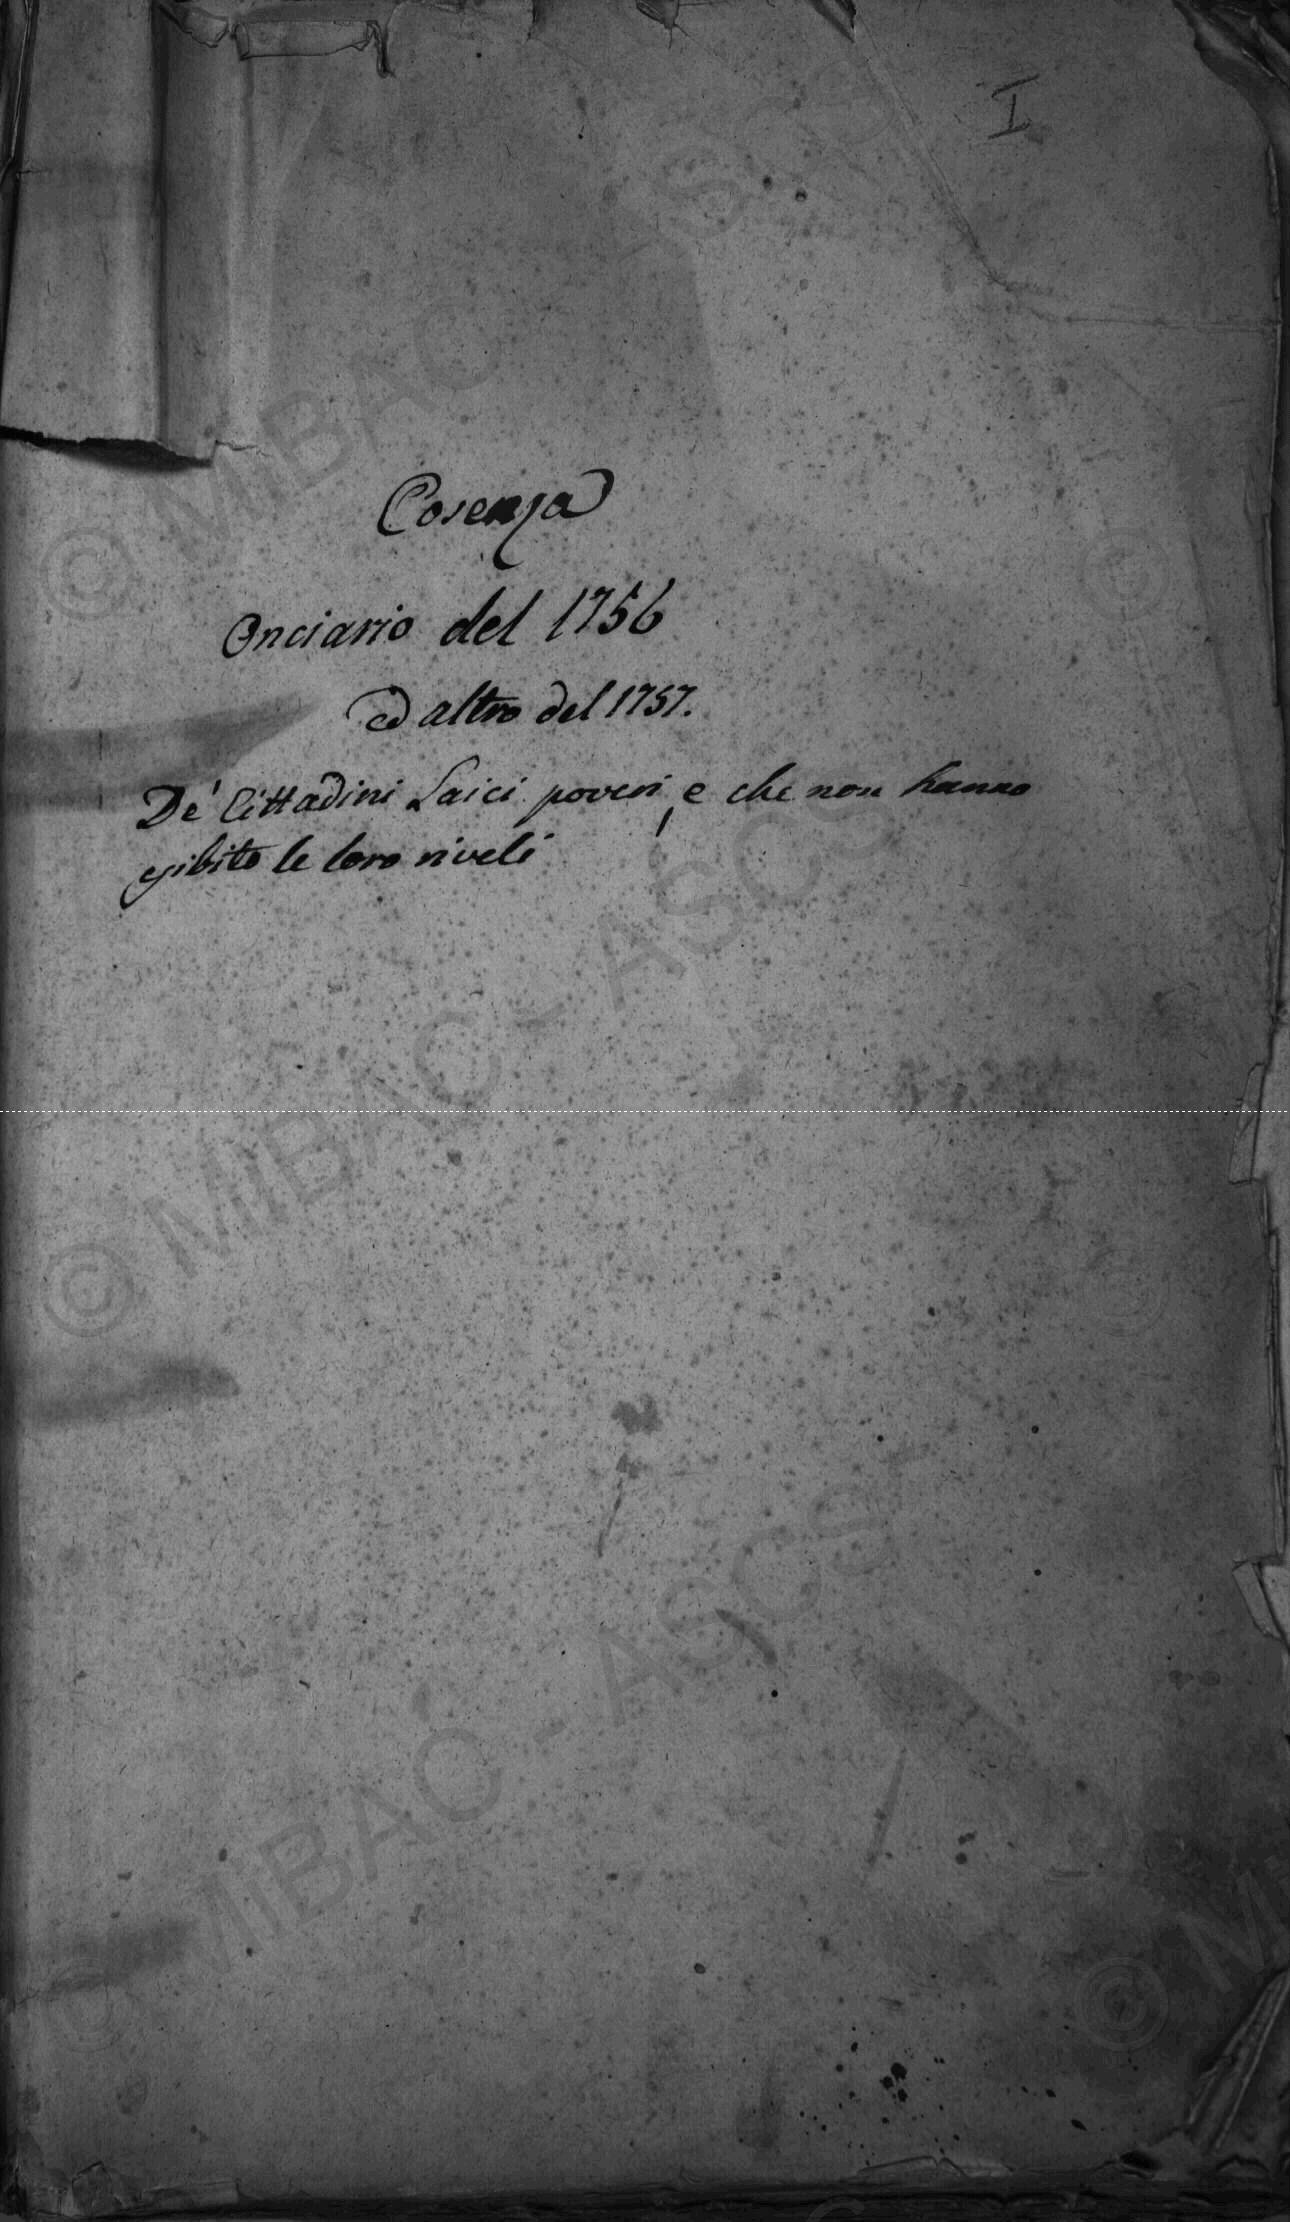 I
Cosenza
Onciario del 1756
ed altro del 1757.
De' Cittadini Laici poveri, e che non hanno
esibito le loro riveli
© MiBAC - ASCS
© MiBAC - ASCS
© MiBAC - ASCS